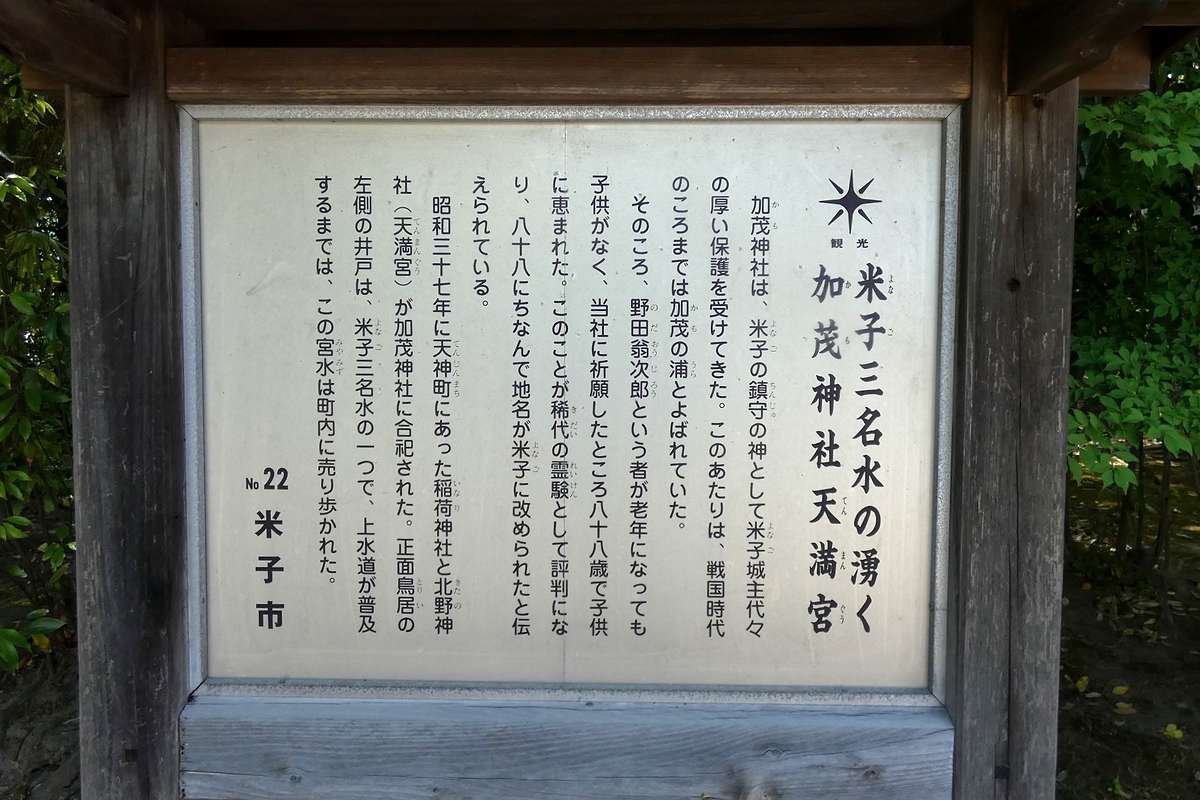 観光
米子三名水の湧く
加茂神社天満宮
加茂神社は、米子の鎮守の神として米子城主代々
の厚い保護を受けてきた。このあたりは、戦国時代
のころまでは加茂の浦とよばれていた。
そのころ、野田翁次郎という者が老年になっても
子供がなく、当社に祈願したところ八十八歳で子供
に恵まれた。このことが稀代の霊験として評判にな
り、八十八にちなんで地名が米子に改められたと伝
えられている。
昭和三十七年に天神町にあった稲荷神社と北野神
社（天満宮）が加茂神社に合祀された。正面鳥居の
左側の井戸は、米子三名水の一つで、上水道が普及
するまでは、この宮水は町内に売り歩かれた。
No22 米子市